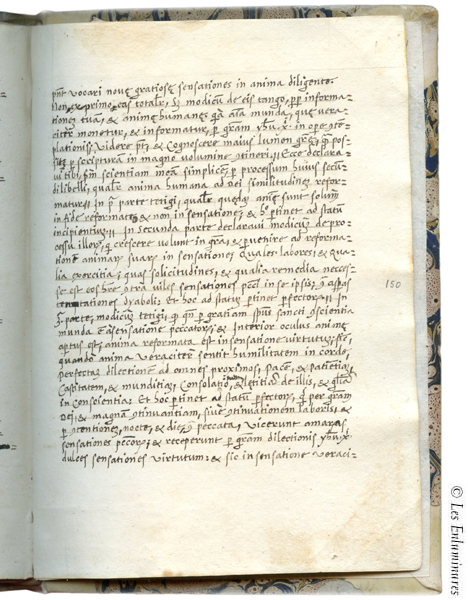 pnt vocari novę gratiosę sensationes in anima diligente.
Non exprimo eas totalr, sꝫ modicū de eis tango, ꝑꝑ informa-
tionē tuā, & animę humanę: qa aīa munda, que vera-
citer monetur, & informatur, ꝑ gram yhū x̄ in oꝑe cōtē-
plationis, videre pt, & cognoscere maius lumen grę, qᵃ̄ pos-
ꝑ scripturā in magno volumine Ecce declara-
vi tibi, scm scientiam meā sīplicē, ꝑ processum huius secūdi
libelli, qualr anima humana ad dei similitudinē refor-
matur. in pᵃ parte tetigi, qualr quędā anię sunt solum
in fide reformatę, & non in sensatione, & hᵒ ꝑtinet ad statū
incipientiū. In secunda parte declaravi modicum de pro-
cessu illorꝫ, q crescere volunt in grᵃ, & ꝑvenire ad reforma-
tionē animarꝫ suarꝫ in sensatione. Quales labores, & qua-
lia exercitia, quas solicitudines, & qualia remedia necess-
se est eos hr̄e cōtra viles sensationes pccī in se ipsis, & cōtra
temtationes dyaboli. Et hoc ad statū ꝑtinet ꝑfectorꝫ. In
3ᵃ parte, modicum tetigi, qn ꝑ gratiam spūs sancti cōscientia
munda ē a sensatione peccatorꝫ, & Interior oculus animę
aꝑtus est, anima reformata est in sensatione virtutū, sic,
quando anima veraciter sentit humilitatem in corde,
perfectā dilectionē ad omnes proximos, pacē, & patiētiā,
castitatem, & munditiā, consolatiōē, & letitiā de illis, & glīa
in conscientia. Et hoc ꝑtinet ad statū ꝑfectorꝫ, q ꝑ gram
dei, & magnā cōtinuantiam, sive cōtinuationem laboris, &
ꝑ cōtentionē, nocte, & die, cō peccata, vicerunt amaras
sensationes peccorꝫ, & receperunt ꝑ gram dilectionis yhū x̄
dulces sensationes virtutum, & sic in sensatione veraci-
150
© Les Enluminures